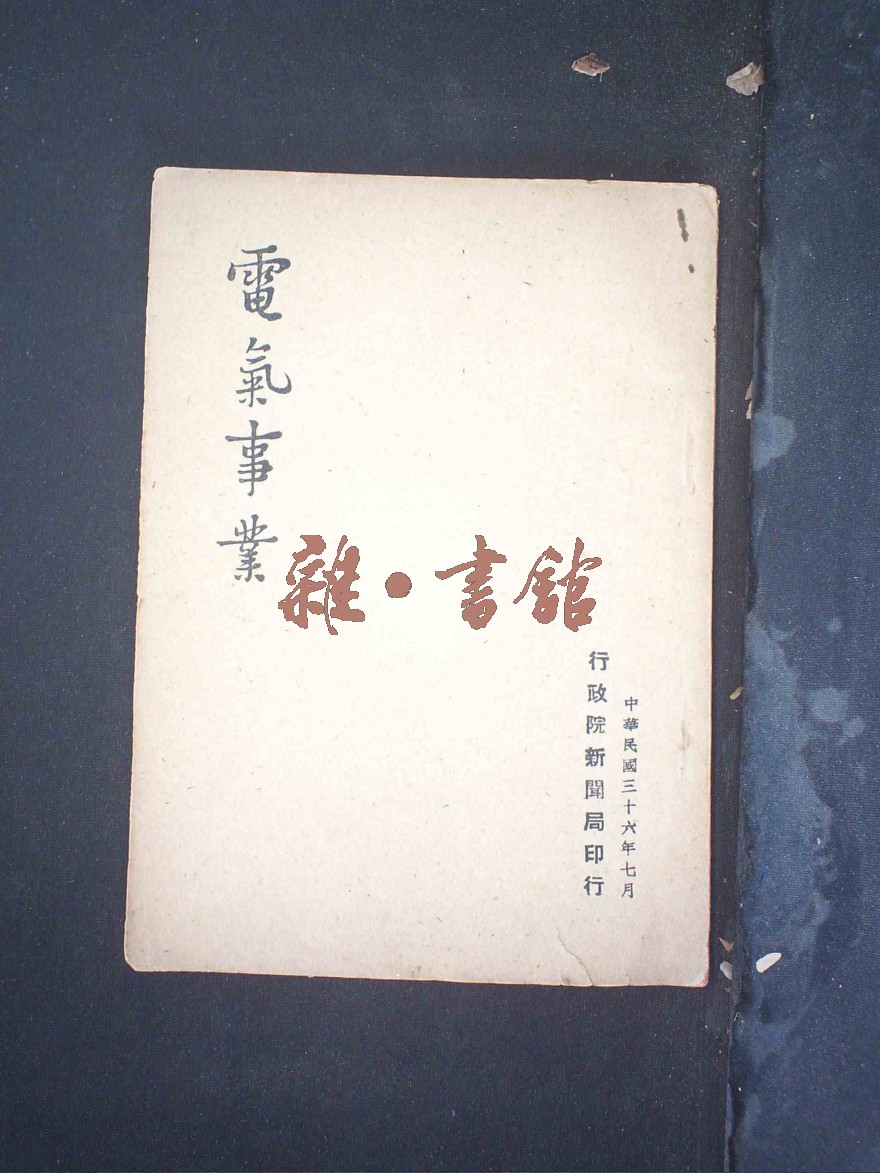 中華民國三十六年七月
行政院新聞局印行
電氣事業
雜•書館